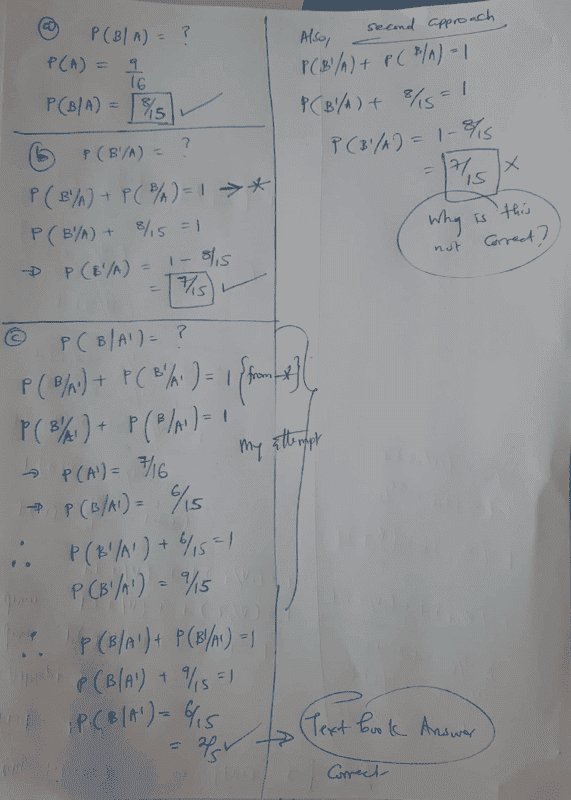 (a) P(B|A) = ?
P(A) = 9/16
P(B|A) = 8/15 ✓
(b) P(B'/A) = ?
P(B'/A) + P(B/A) = 1 → *
P(B'/A) + 8/15 = 1
⇒ P(B'/A) = 1 - 8/15
= 7/15 ✓
(c) P(B|A') = ?
P(B/A') + P(B'/A') = 1 {from *}
P(B'/A') + P(B/A') = 1
My attempt
→ P(A') = 7/16
⇒ P(B/A') = 6/15
∴ P(B'/A') + 6/15 = 1
P(B'/A') = 9/15
∴ P(B|A') + P(B'/A') = 1
P(B|A') + 9/15 = 1
P(B|A') = 6/15
= 2/5 ✓ → Text book Answer
Correct
Also, second approach
P(B'/A) + P(B/A) = 1
P(B'/A) + 8/15 = 1
P(B'/A) = 1 - 8/15
= 7/15 ×
Why is this
not correct?